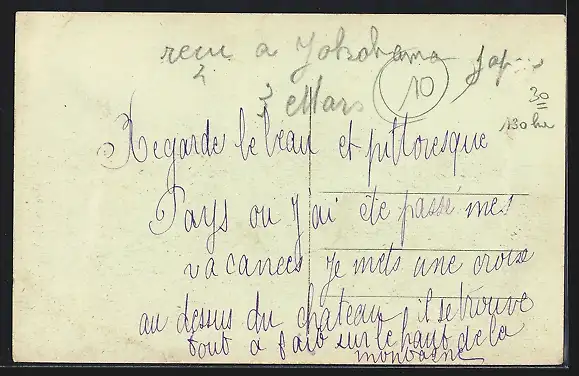 recu a Yokohama Jap
10
3 Mars
30
130
Regarde le beau et pittoresque
Pays ou j'ai éte passé mes
vacances je mets une croix
au dessus du chateau il se trouve
tout a fait sur le haut de la
montagne